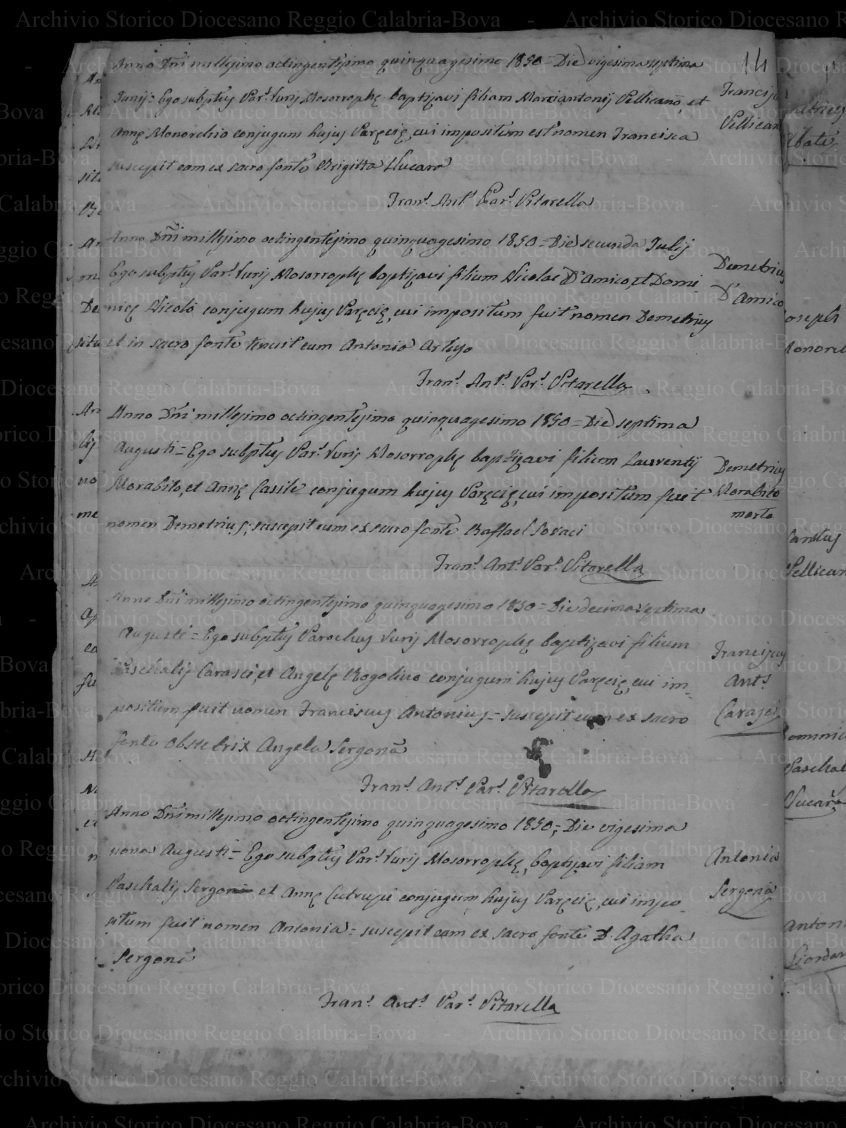 14
Anno Dñi millesimo octingentesimo quinquagesimo 1850 = Die vigesima septima
Junij = Ego subptus Par.s Turis Mosorrophę baptizavi filiam Marciantonij Pellicano, et
Annę Monorchio conjugum hujus Paręcię, cui impositum est nomen Francisca
suscepit eam ex sacro fonte Brigitta
Fran.s Ant.s Par.s Pitarella
Pellican
Anno Dñi millesimo octingentesimo quinquagesimo 1850 = Die secunda Julij
Ego subptus Par.s Turis Mosorrophę baptizavi filium Nicolae D'Amico, et Domi
nicę Nicolò conjugum hujus Paręcię, cui impositum fuit nomen Demetrius
et in sacro fonte tenuit eum Antonia
Fran.s Ant.s Par.s Pitarella
Demetrius
D'Amico
Anno Dñi millesimo octingentesimo quinquagesimo 1850 = Die septima
Augusti = Ego subptus Par.s Turis Mosorrophę baptizavi filium Laurentij
Morabito, et Annę Casile conjugum hujus Paręcię, cui impositum fuit
nomen Demetrius, suscepit eum ex sacro fonte Raffael
Fran.s Ant.s Par.s Pitarella
Demetrius
Morabito
morto
Anno Dñi millesimo octingentesimo quinquagesimo 1850 = Die decima septima
Augusti = Ego subptus Parochus Turis Mosorrophę baptizavi filium
Paschalis Carasci, et Angelę Rogolino conjugum hujus Paręcię, cui im-
positum fuit nomen Franciscus Antonius = suscepit eum ex sacro
fonte Obstetrix Angela Sergonà
Fran.s Ant.s Par.s Pitarella
Ant.s
Anno Dñi millesimo octingentesimo quinquagesimo 1850 = Die vigesima
nona Augusti = Ego subptus Par.s Turis Mosorrophę, baptizavi filiam
Paschalis Sergonà et Annę Cutrupi conjugum hujus Paręcię, cui impo-
situm fuit nomen Antonia = suscepit eam ex sacro fonte D. Agatha
Sergonà
Fran.s Ant.s Par.s Pitarella
Antonia
Sergonà
Archivio Storico Diocesano Reggio Calabria-Bova